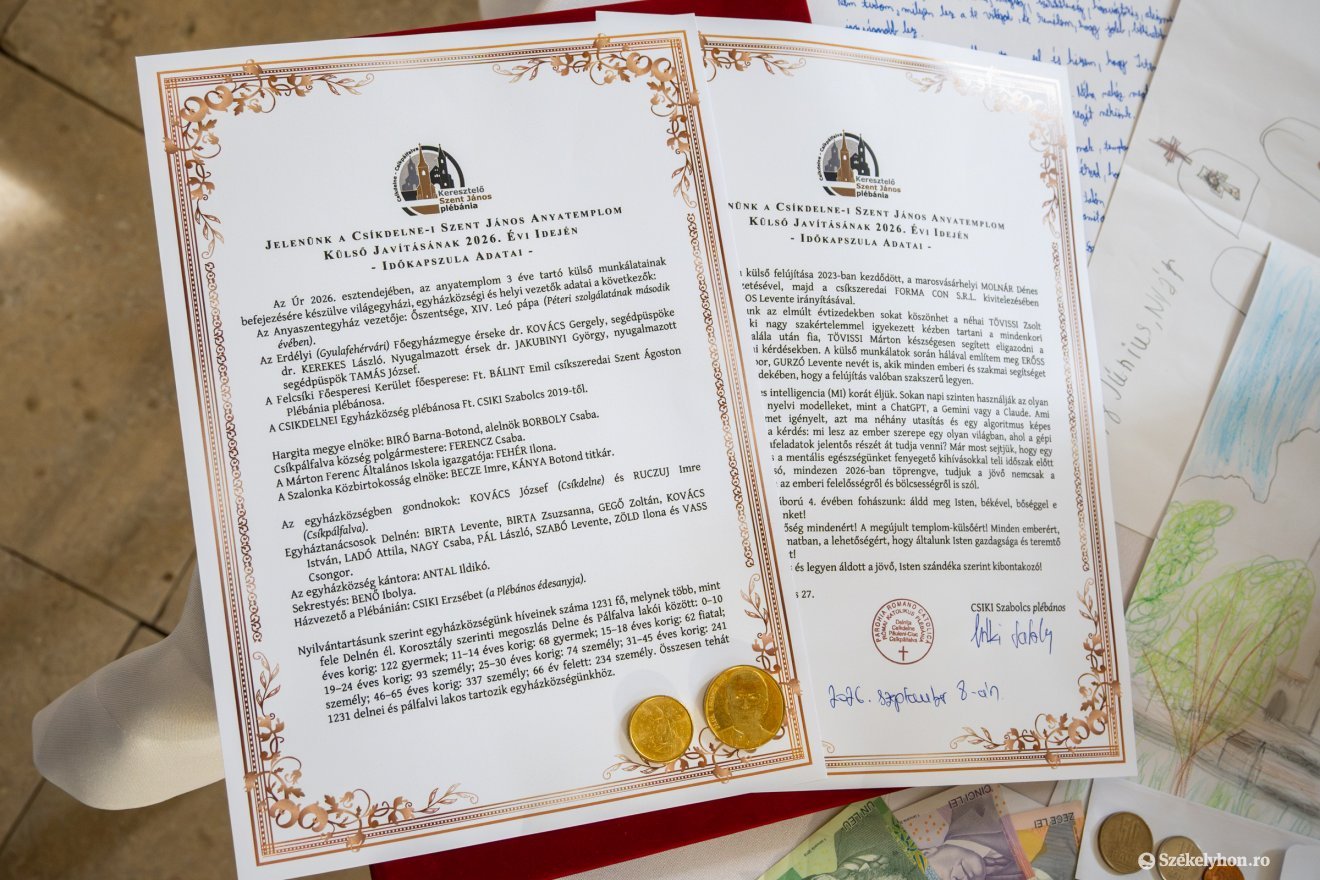 Csíkdelne - Csíkpálfalva
Keresztelő
Szent János
plébánia
Jelenünk a Csíkdelne-i Szent János Anyatemplom
Külső Javításának 2026. Évi Idején
- Időkapszula Adatai -
Az Úr 2026. esztendejében, az anyatemplom 3 éve tartó külső munkálatainak
befejezésére készülve világegyházi, egyházközségi és helyi vezetők adatai a következők:
Az Anyaszentegyház vezetője: Őszentsége, XIV. Leó pápa (Péteri szolgálatának második
évében).
Az Erdélyi (Gyulafehérvári) Főegyházmegye érseke dr. KOVÁCS Gergely, segédpüspöke
dr. KEREKES László. Nyugalmazott érsek dr. JAKUBINYI György, nyugalmazott
segédpüspök TAMÁS József.
A Felcsíki Főesperesi Kerület főesperese: Ft. BÁLINT Emil csíkszeredai Szent Ágoston
Plébánia plébánosa.
A CSIKDELNEI Egyházközség plébánosa Ft. CSIKI Szabolcs 2019-től.
Hargita megye elnöke: BIRÓ Barna-Botond, alelnök BORBOLY Csaba.
Csíkpálfalva község polgármestere: FERENCZ Csaba.
A Márton Ferenc Általános Iskola igazgatója: FEHÉR Ilona.
A Szalonka Közbirtokosság elnöke: BECZE Imre, KÁNYA Botond titkár.
Az egyházközségben gondnokok: KOVÁCS József (Csíkdelne) és RUCZUJ Imre
(Csíkpálfalva).
Egyháztanácsosok Delnén: BIRTA Levente, BIRTA Zsuzsanna, GEGŐ Zoltán, KOVÁCS
István, LADÓ Attila, NAGY Csaba, PÁL László, SZABÓ Levente, ZÖLD Ilona és VASS
Csongor.
Az egyházközség kántora: ANTAL Ildikó.
Sekrestyés: BENŐ Ibolya.
Házvezető a Plébánián: CSIKI Erzsébet (a Plébános édesanyja).
Nyilvántartásunk szerint egyházközségünk híveinek száma 1231 fő, melynek több, mint
fele Delnén él. Korosztály szerinti megoszlás Delne és Pálfalva lakói között: 0–10
éves korig: 122 gyermek; 11–14 éves korig: 68 gyermek; 15–18 éves korig: 62 fiatal;
19–24 éves korig: 93 személy; 25–30 éves korig: 74 személy; 31–45 éves korig: 241
személy; 46–65 éves korig: 337 személy; 66 év felett: 234 személy. Összesen tehát
1231 delnei és pálfalvi lakos tartozik egyházközségünkhöz.
Csíkdelne - Csíkpálfalva
Keresztelő
Szent János
plébánia
NÜNK A CSÍKDELNE-I SZENT JÁNOS ANYATEMPLOM
Külső Javításának 2026. Évi Idején
- Időkapszula Adatai -
külső felújítása 2023-ban kezdődött, a marosvásárhelyi MOLNÁR Dénes
etésével, majd a csíkszeredai FORMA CON S.R.L. kivitelezésében
OS Levente irányításával.
unk az elmúlt évtizedekben sokat köszönhet a néhai TÖVISSI Zsolt
ki nagy szakértelemmel igyekezett kézben tartani a mindenkori
alála után fia, TÖVISSI Márton készségesen segített eligazodni a
i kérdésekben. A külső munkálatok során hálával említem meg ERŐSS
bor, GURZÓ Levente nevét is, akik minden emberi és szakmai segítséget
dekében, hogy a felújítás valóban szakszerű legyen.
es intelligencia (MI) korát éljük. Sokan napi szinten használják az olyan
nyelvi modelleket, mint a ChatGPT, a Gemini vagy a Claude. Ami
met igényelt, azt ma néhány utasítás és egy algoritmus képes
a kérdés: mi lesz az ember szerepe egy olyan világban, ahol a gépi
afeladatok jelentős részét át tudja venni? Már most sejtjük, hogy egy
s a mentális egészségünket fenyegető kihívásokkal teli időszak előtt
só, mindezen 2026-ban töprengve, tudjuk a jövő nemcsak a
az emberi felelősségről és bölcsességről is szól.
ború 4. évében fohászunk: áldd meg Isten, békével, bőséggel e
nket!
őség mindenért! A megújult templom-külsőért! Minden emberért,
matban, a lehetőségért, hogy általunk Isten gazdagsága és teremtő
t!
és legyen áldott a jövő, Isten szándéka szerint kibontakozó!
s 27.
CSIKI Szabolcs plébános
PAROHIA ROMANO CATOLICA
RÓMAI KATOLIKUS PLÉBÁNIA
Delnița
Csíkdelne
Păuleni-Ciuc
Csíkpálfalva
2026. szeptember 8-án.
Június, Nyár
UN LEU
CINCI LEI
ZECE LEI
Székelyhon.ro